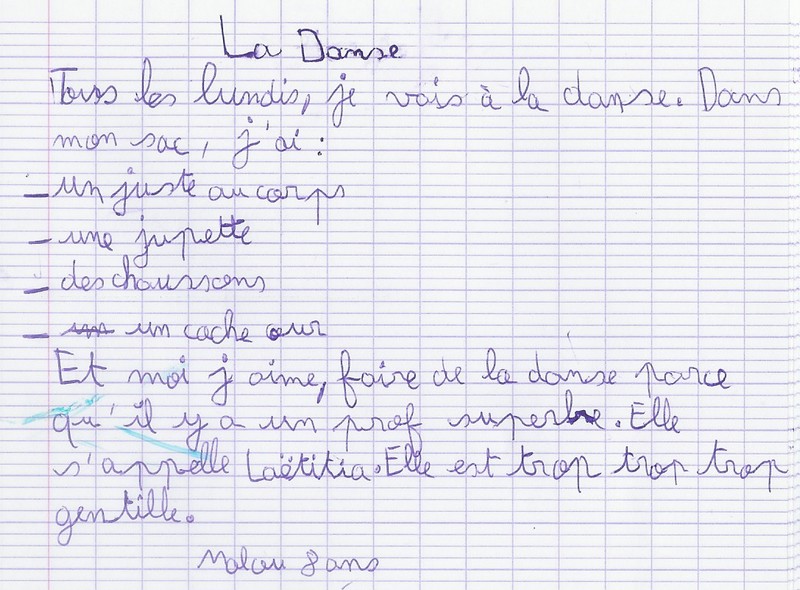 La Danse
Tous les lundis, je vais à la danse. Dans
mon sac, j'ai :
- un juste au corps
- une jupette
- des chaussons
- un cache œur
Et moi j'aime, faire de la danse parce
qu'il y a un prof superbe. Elle
s'appelle Laëtitia. Elle est trop trop trop
gentille.
Malou 8 ans